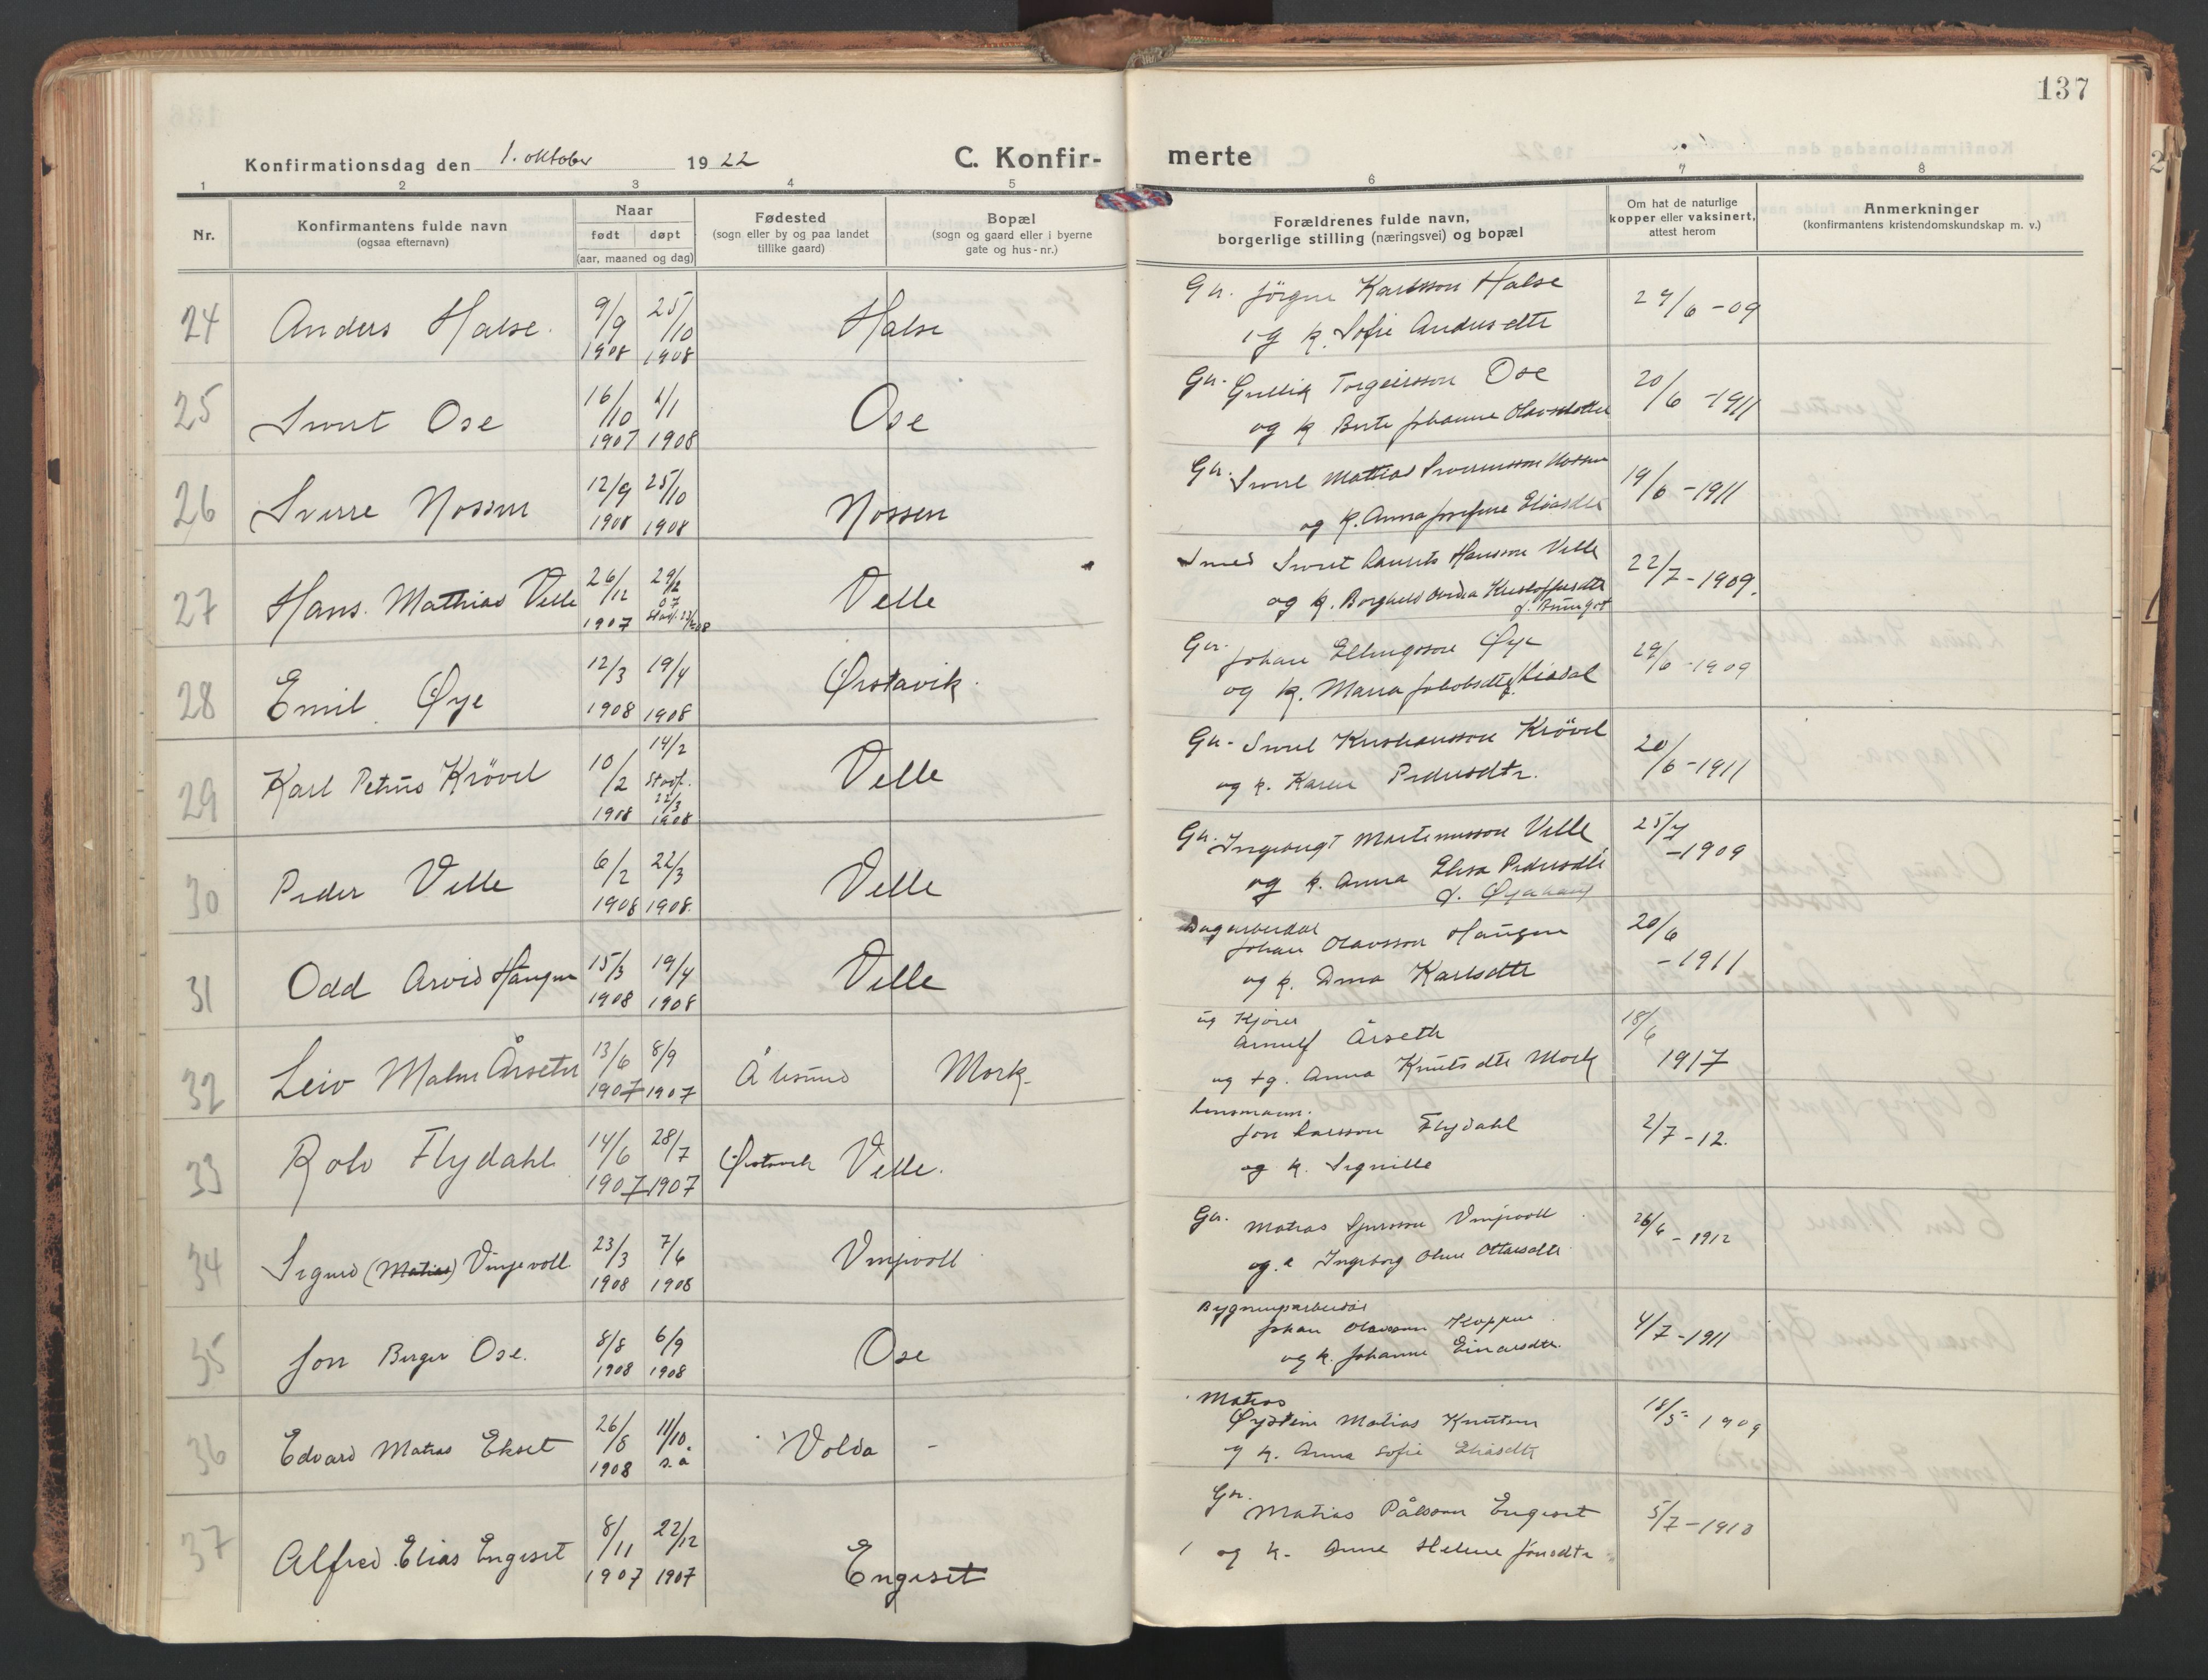 137
Konfirmationsdag den 1. oktober 1922
C. Konfir-
merte
1 2 3 4 5 6 7 8
Nr.
Konfirmantens fulde navn
(ogsaa efternavn)
Naar
født døpt
(aar, maaned og dag)
Fødested
(sogn eller by og paa landet
tillike gaard)
Bopæl
(sogn og gaard eller i byerne
gate og hus-nr.)
Forældrenes fulde navn,
borgerlige stilling (næringsvei) og bopæl
Om hat de naturlige
kopper eller vaksinert,
attest herom
Anmerkninger
(konfirmantens kristendomskundskap m. v.)
24 Anders Halse. 9/9 1908 25/10 1908 Halse
Gr. Jørgen Karlsson Halse
og k. Sofie Andersdtr
29/6 -09
25 Sivert Ose 16/10 1907 1/1 1908 Ose
Gr. Gullik Torgeirsson Ose
og k Berte Johanne Olavsdotter
20/6 -1911
26 Sverre Nossen 12/9 1908 25/10 1908 Nossen
Gr. Sivert Mattias Nossen
og k. Anna Josefine Eliasdtr
19/6 -1911
27 Hans. Mathias Velle 26/12 1907 29/12 07 Velle
Smed Sivert Laurits Hansson Velle
og k. Borghild
22/7 -1909.
28 Emil Øye 12/3 1908 19/4 1908 Ørstavik.
Gr. Johan Ellingsson Øye
og k. Maria Jakobsdtr f. Liadal
29/6 -1909
29 Karl Petrus Krøvel 10/2 1908 14/2 Stadf. 22/3 1908 Velle
Gr. Sivert Kristiansson Krövel
og k. Karen Pedersdtr.
20/6 -1911
30 Peder Velle 6/2 1908 22/3 1908. Velle
Gr. Ingvangt Martinusson Velle
og k. Anna Elisa Pedersdtr
f. Øyehaug
25/7 -1909
31 Odd Arvid Haugen 15/3 1908 19/4 1908 Velle
Dagarbeidar
Johan Olavsson Haugen
og k. Dina Karlsdtr
20/6 -1911
32 Leiv Malm Årseth 13/6 1907 8/9 1907 Ålesund Mork.
ug Kjörer
Arnulf Årseth
og Anna Knutsdtr Mork
18/6 1917
33 Rolv Flydahl 14/6 1907 28/7 1907 Ørstavik Velle.
Lensmann.
Jon Larsson Flydahl
og k. Signille
2/7 -12.
34 Sigurd (Matias) Vinjevoll 23/3 1908 7/6 1908 Vinjevoll
Gr. Matias Sjursson Vinjevoll
og k Ingeborg Oline Ottarsdtr
26/6 -1912
35 Jon Berger Ose. 8/8 1908 6/9 1908 Ose
Bygningsarbeidar
Johan Olavsson Koppen
og k. Johanne Einarsdtr.
4/7 -1911
36 Edvard Matias Ekset 26/8 1908 11/10. s. a Volda -
Matias
Øystein Matias Knutsen
og k. Anna Sofie Eliasdtr
18/5 - 1909
37 Alfred Elias Engeset 8/11 1907 22/12 1907 Engeset
Gr.
Matias Pålsson Engeset
og k. Anne Helene Jonsdtr
5/7 -1913